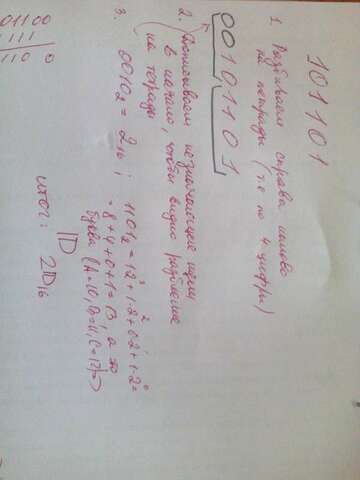 101101
1. Разбиваем справа налево
на тетрады (т.е по 4 цифры)
00101101
2. Дописываем незначащие нули
в начало, чтобы видно разбиение
на тетрады
3. 0010₂ = 2₁₆ ; 1101₂ = 1·2³+1·2²+0·2¹+1·2⁰=
= 8+4+0+1=13 а это
буква (A=10, B=11, C=12)=>
D
итог: 2D₁₆
01100
111
110 0